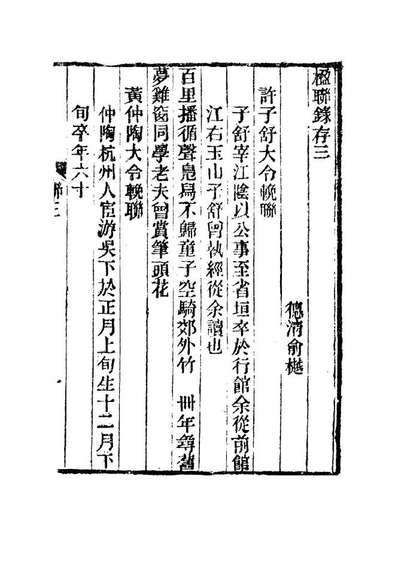 楹聯錄存三
德清俞樾
許子舒大令輓聯
子舒宰江陰以公事至省垣卒於行館余從前館
江右玉山子舒曾執經從余讀也
百里播循聲鳧舄不歸童子空騎郊外竹 卌年尋舊
夢雞窗同學老夫曾賞筆頭花
黃仲陶大令輓聯
仲陶杭州人宦游吳下於正月上旬生十二月下
旬卒年六十
聯三